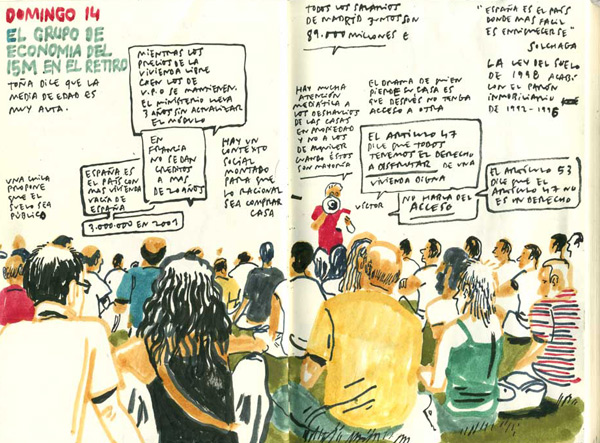 DOMINGO 14
EL GRUPO DE
ECONOMIA DEL
15M EN EL RETIRO
TOÑA DICE QUE LA
MEDIA DE EDAD ES
MUY ALTA.
MIENTRAS LOS
PRECIOS DE LA
VIVIENDA LIBRE
CAEN LOS DE
V.P.O SE MANTIENEN.
EL MINISTERIO LLEVA
3 AÑOS SIN ACTUALIZAR
EL MÓDULO
EN
FRANCIA
NO SE DAN
CREDITOS
A MAS
DE 20 AÑOS
ESPAÑA ES
EL PAÍS CON
MAS VIVIENDA
VACÍA DE
ESPAÑA
3.000.000 EN 2001
UNA CHICA
PROPONE
QUE EL
SEA
PÚBLICO
HAY UN
CONTEXTO
SOCIAL
MONTADO
PARA QUE
LO RACIONAL
SEA COMPRAR
CASA
TODOS LOS SALARIOS
DE MADRID JUNTOS SON
89.000 MILLONES €
"ESPAÑA ES EL PAÍS
DONDE MAS FACIL
ES ENRIQUECERSE"
SOLCHAGA
LA LEY DEL SUELO
DE 1998 ACABÓ
CON EL PARÓN
INMOBILIARIO
DE 1992-1996
HAY MUCHA
ATENCIÓN
MEDIÁTICA A
LOS DESHAUCIOS
DE LAS CASAS
EN PROPIEDAD
Y NO A LOS
DE ALQUILER
CUANDO ÉSTOS
SON MAYORÍA
EL DRAMA DE QUIEN
PIERDE SU CASA ES
QUE DESPUÉS NO TENGA
ACCESO A OTRA
EL ARTICULO 47
DICE QUE TODOS
TENEMOS EL DERECHO
A DISFRUTAR DE UNA
VIVIENDA DIGNA
VÍCTOR
NO HABLA DEL
ACCESO
EL ARTÍCULO 53
DICE QUE EL
ARTÍCULO 47 NO ES
UN DERECHO